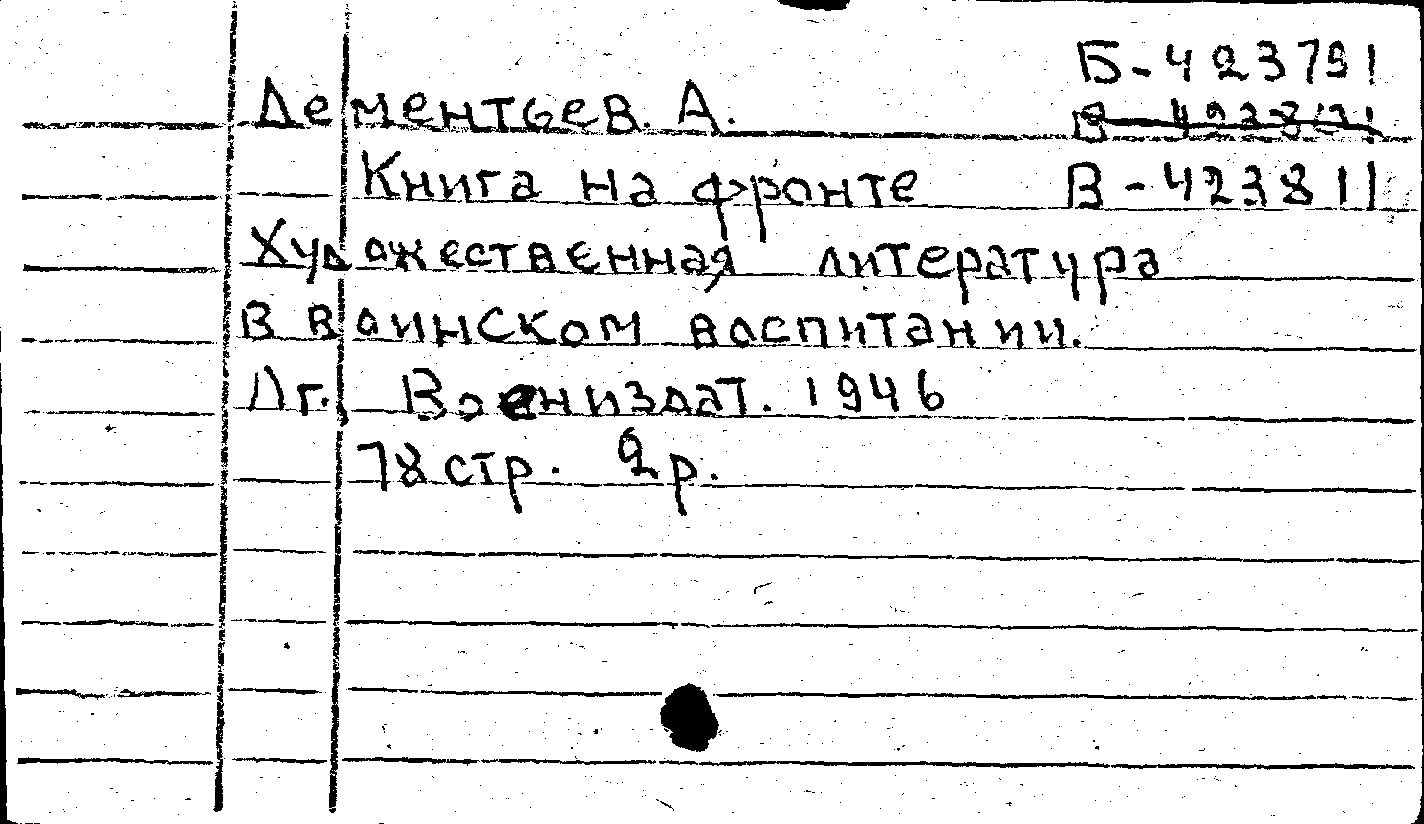 Б-423791
Дементьев. А.
Книга на фронте В-423811
Художественная литература
в воинском воспитании.
Лг. Воениздат. 1946
78 стр. 2 р.